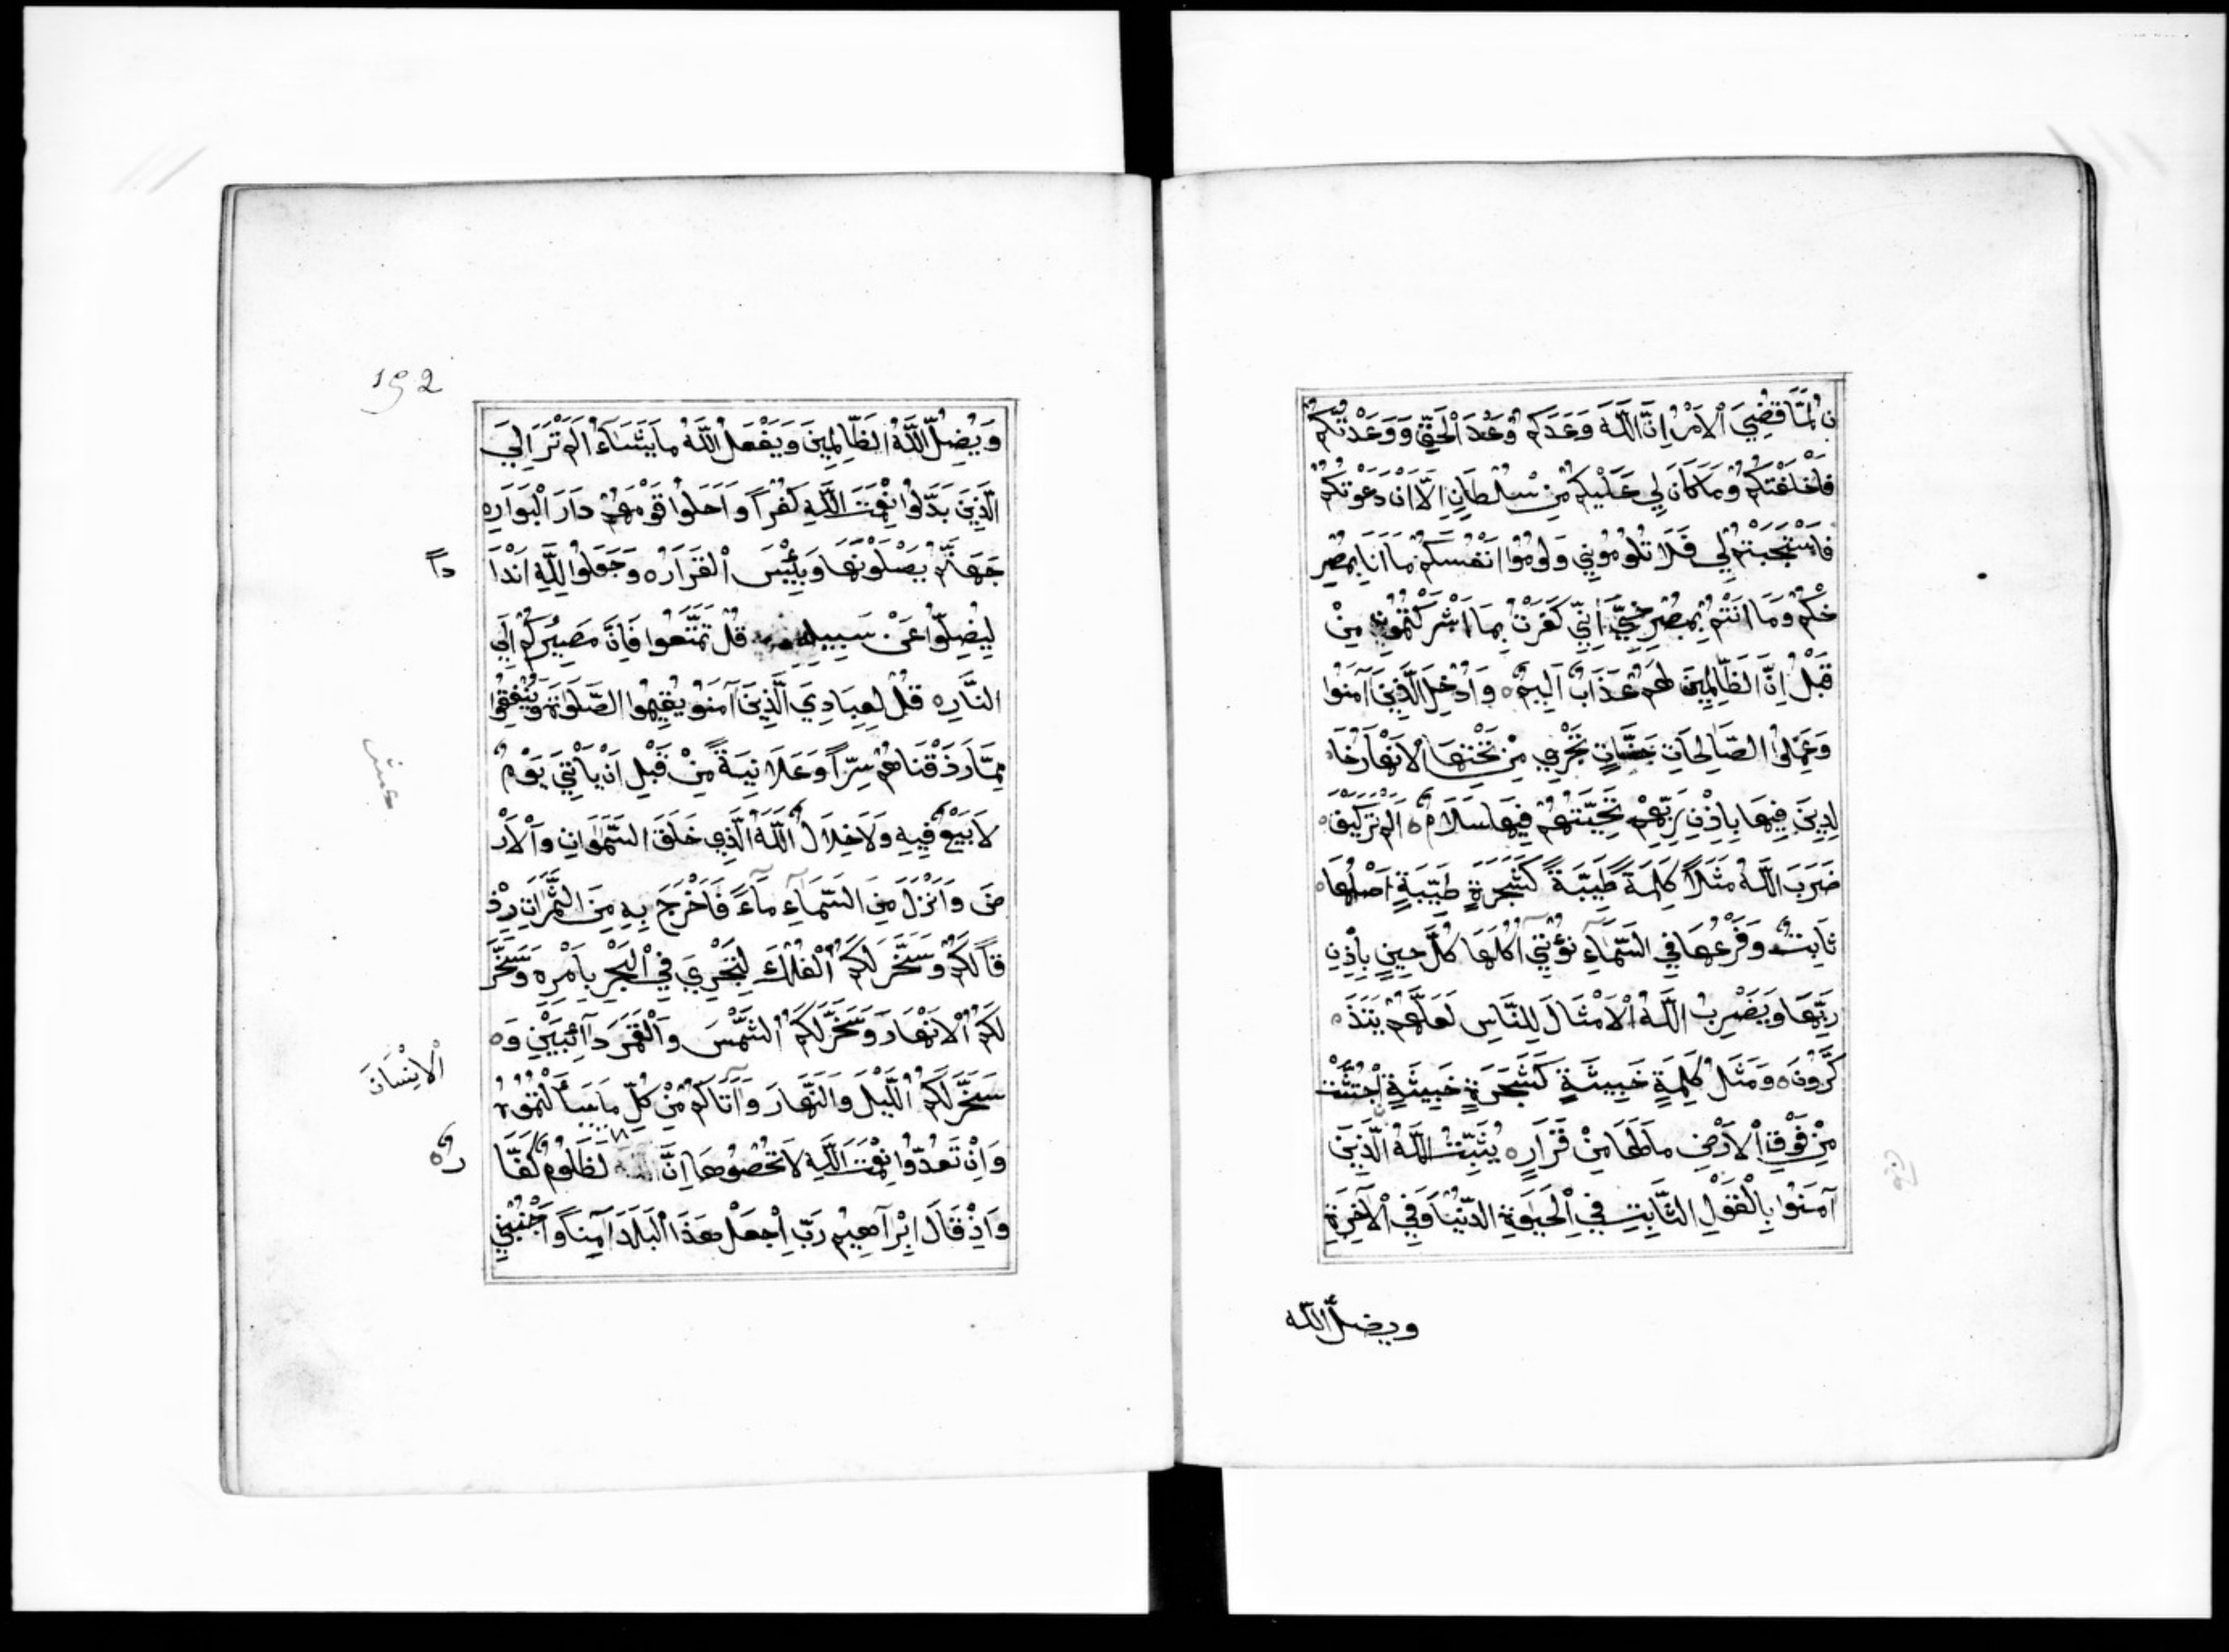 ن لَمَّا قُضِيَ الْاَمْرُ اِنَّ اللَّهَ وَعَدَكُمْ وَعْدَ الْحَقِّ وَوَعَدْتُكُمْ
فَاَخْلَفْتُكُمْ وَمَا كَانَ لِي عَلَيْكُمْ مِنْ سُلْطَانٍ اِلَّا اَنْ دَعَوْتُكُمْ
فَاسْتَجَبْتُمْ لِي فَلَا تَلُومُونِي وَلُومُوا اَنْفُسَكُمْ مَا اَنَا بِمُصْرِ
خِكُمْ وَمَا اَنْتُمْ بِمُصْرِخِيَّ اِنِّي كَفَرْتُ بِمَا اَشْرَكْتُمُونِ مِنْ
قَبْلُ اِنَّ الظَّالِمِينَ لَهُمْ عَذَابٌ اَلِيمٌ ه وَاُدْخِلَ الَّذِينَ آمَنُوا
وَعَمِلُوا الصَّالِحَاتِ جَنَّاتٍ تَجْرِي مِنْ تَحْتِهَا الْاَنْهَارُ خَا
لِدِينَ فِيهَا بِاِذْنِ رَبِّهِمْ تَحِيَّتُهُمْ فِيهَا سَلَامٌ ه اَلَمْ تَرَ كَيْفَ
ضَرَبَ اللَّهُ مَثَلًا كَلِمَةً طَيِّبَةً كَشَجَرَةٍ طَيِّبَةٍ اَصْلُهَا
ثَابِتٌ وَفَرْعُهَا فِي السَّمَآءِ تُؤْتِي اُكُلَهَا كُلَّ حِينٍ بِاِذْنِ
رَبِّهَا وَيَضْرِبُ اللَّهُ الْاَمْثَالَ لِلنَّاسِ لَعَلَّهُمْ يَتَذَ
كَّرُونَ ه وَمَثَلُ كَلِمَةٍ خَبِيثَةٍ كَشَجَرَةٍ خَبِيثَةٍ اجْتُثَّتْ
مِنْ فَوْقِ الْاَرْضِ مَا لَهَا مِنْ قَرَارٍ ه يُثَبِّتُ اللَّهُ الَّذِينَ
آمَنُوا بِالْقَوْلِ الثَّابِتِ فِي الْحَيٰوةِ الدُّنْيَا وَفِي الْآخِرَةِ
ويضلّ اللّه
192
وَيُضِلُّ اللَّهُ الظَّالِمِينَ وَيَفْعَلُ اللَّهُ مَا يَشَآءُ اَلَمْ تَرَ اِلَي
الَّذِينَ بَدَّلُوا نِعْمَتَ اللَّهِ كُفْرًا وَاَحَلُّوا قَوْمَهُمْ دَارَ الْبَوَارِ ه
جَهَنَّمَ يَصْلَوْنَهَا وَبِئْسَ الْقَرَارُ ه وَجَعَلُوا لِلَّهِ اَنْدَا
دًا
لِيُضِلُّوا عَنْ سَبِيلِهِ قُلْ تَمَتَّعُوا فَاِنَّ مَصِيرَكُمْ اِلَي
النَّارِ ه قُلْ لِعِبَادِيَ الَّذِينَ آمَنُو يُقِيمُوا الصَّلَوٰةَ وَيُنْفِقُوا
مِمَّا رَزَقْنَاهُمْ سِرًّا وَعَلَانِيَةً مِنْ قَبْلِ اَنْ يَاْتِيَ يَوْمٌ
لَا بَيْعٌ فِيهِ وَلَا خِلَالٌ اَللَّهُ الَّذِي خَلَقَ السَّمٰوَاتِ وَالْاَرْ
ضَ وَاَنْزَلَ مِنَ السَّمَآءِ مَآءً فَاَخْرَجَ بِهِ مِنَ الثَّمَرَاتِ رِزْ
قًا لَكُمْ وَسَخَّرَ لَكُمُ الْفُلْكَ لِتَجْرِيَ فِي الْبَحْرِ بِاَمْرِهِ وَسَخَّرَ
لَكُمُ الْاَنْهَارَ وَسَخَّرَ لَكُمُ الشَّمْسَ وَالْقَمَرَ دَآئِبَيْنِ وَ ه
سَخَّرَ لَكُمُ اللَّيْلَ وَالنَّهَارَ وَآتَاكُمْ مِنْ كُلِّ مَا سَاَلْتُمُوُ
الْاِنْسَانَ
وَاِنْ تَعُدُّوا نِعْمَتَ اللَّهِ لَا تُحْصُوهَا اِنَّ لَظَلُومٌ كَفَّا
رٌ ه
وَاِذْ قَالَ اِبْرَآهِيمُ رَبِّ اجْعَلْ هَذَا الْبَلَدَ آمِنًا وَاجْنُبْنِي